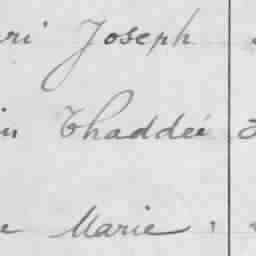 ri Joseph
in Thaddeé
e Marie